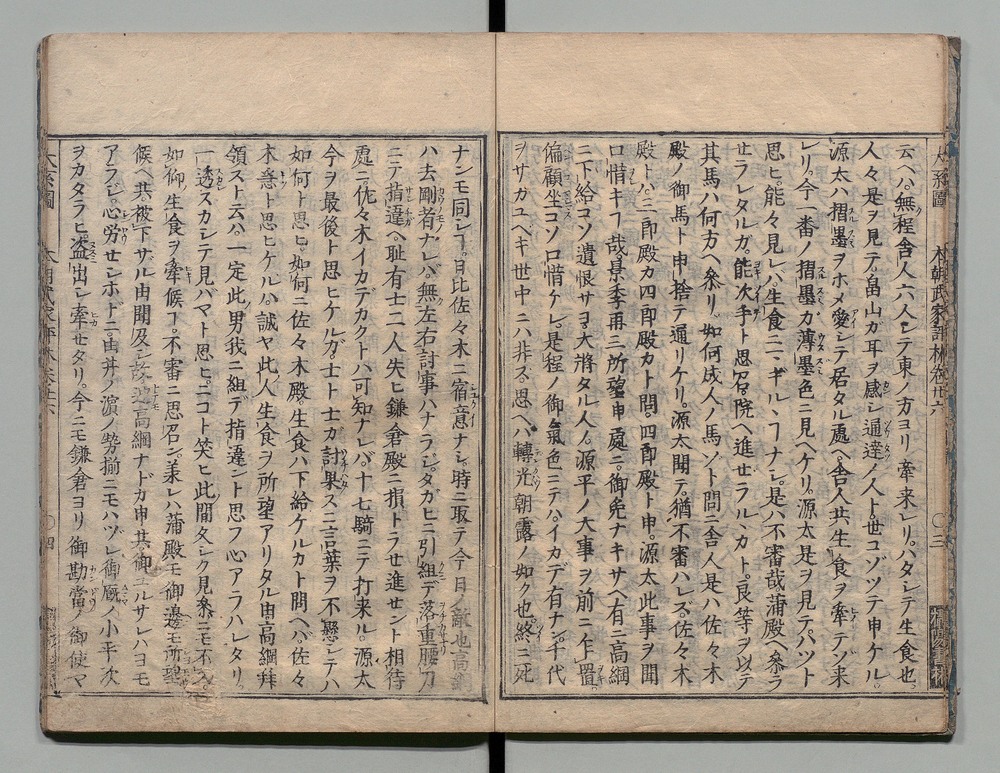 云ヘハ無程舎人六人シテ東ノ方ヨリ牽来レリ。ハタシテ生食也。
人々是ヲ見テ。畠山ガ耳ヲ感シ通達ノ人ト世コゾツテ申ケル。
源太ハ摺墨ヲホメ愛シテ居タル處ヘ舎人共生食ヲ牽テゾ来
レリ。今一番ノ摺墨カ薄墨色ニ見ヘケリ。源太是ヲ見テハツト
思ヒ能々見レバ。生食ニマギルヽフナシ。是ハ不審哉蒲殿ヘ参ラ
セラレタルガ。能次手ト思召院ヘ進セラルヽカト。良等ヲ以テ
其馬ハ何方ヘ参リ如何成人ノ馬ゾト問ニ舎人是ハ佐々木
殿ノ御馬ト申捨テ通リケリ。源太聞テ。猶不審ハレズ佐々木
殿トハ三郎殿カ四郎殿カト問。四郎殿ト申。源太此事ヲ聞
口惜キフ哉。景季再三所望申處ニ。御免ナキサヘ有ニ高綱
ニ下給コソ遺恨サヨ。大將タル人ノ。源平ノ大事ヲ前ニ乍置。
偏頗坐コソ口惜ケレ。是程ノ御氣色ニテハ。イカデ有ナン。千代
ヲサカユベキ世中ニハ非ス。思ヘハ轉光朝露ノ如ク也。終ニ死
ナンモ同シフ。日比佐々木ニ宿意ナシ。時ニ取テ今日ノ敵也高綱
ハ去剛者ナレバ。無左右討事ハナラジ。タガヒニ引組デ落重腰刀
ニテ指違ヘ耻有士二人失ヒ鎌倉殿ニ損トラセ進セント相待
處ニ佐々木イカデカクトハ可知ナレバ。十七騎ニテ打来ル源太
今ヲ最後ト思ヒケルガ。士ト士ガ討果スニ言葉ヲ不懸シテハ
如何ト思ヒ如何ニ佐々木殿。生食ハ下給ケルカト問ヘバ佐々
木意ト思ヒケルハ。誠ヤ此人生食ヲ所望アリタル由高綱拜
領スト云ハヽ一定此男我ニ組デ指違ント思フ心アラハレタリ。
一透スカシテ見バヤト思ヒ。ニコト笑ヒ此間久シク見参ニモ不入
如仰生食ヲ牽候フ。不審ニ思召ン兼レハ蒲殿モ御邊モ所望
候ヘ共被下サル由聞及シ故迚高綱ナドカ申共御ユルサレハヨモ
アラジ。心労センホドニ。由井ノ濱ノ勢揃ニモハヅレ御厩ノ小平次
ヲカタラヒ盗出シ牽セタリ。今ニモ鎌倉ヨリ御勘當ノ御使ヤ